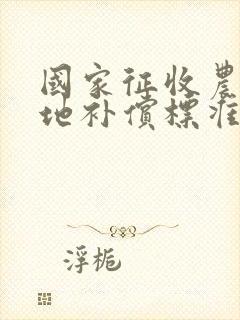 國家征收農
地补償標准
浮栀